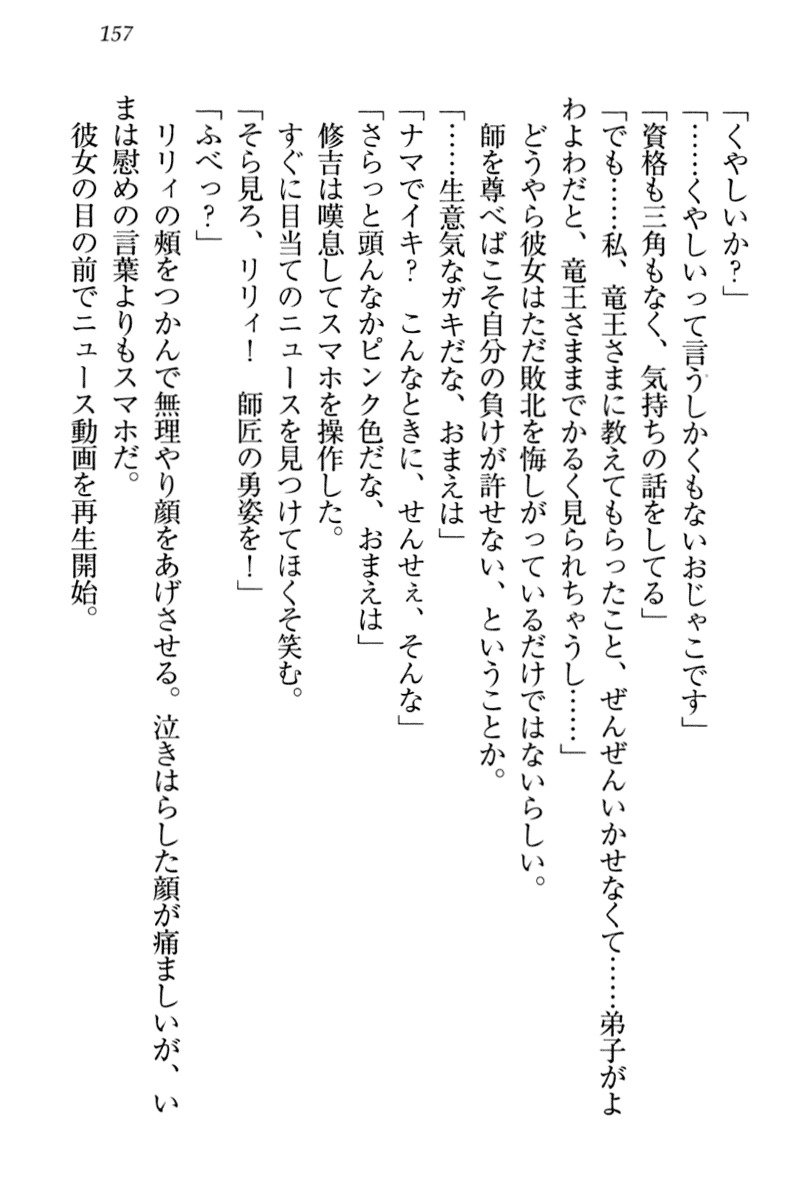 157
「くやしいか？」
「……くやしいって言うしかくもないおじゃこです」
「資格も三角もなく、気持ちの話をしてる」
「でも……私、竜王さまに教えてもらったこと、ぜんぜんいかせなくて……弟子がよ
わよわだと、竜王さままでかるく見られちゃうし……」
どうやら彼女はただ敗北を悔しがっているだけではないらしい。
師を尊べばこそ自分の負けが許せない、ということか。
「……生意気なガキだな、おまえは」
「ナマでイキ？　こんなときに、せんせぇ、そんな」
「さらっと頭んなかピンク色だな、おまえは」
修吉は嘆息してスマホを操作した。
すぐに目当てのニュースを見つけてほくそ笑む。
「そら見ろ、リリィ！　師匠の勇姿を！」
「ふべっ？」
リリィの頰をつかんで無理やり顔をあげさせる。泣きはらした顔が痛ましいが、い
まは慰めの言葉よりもスマホだ。
彼女の目の前でニュース動画を再生開始。